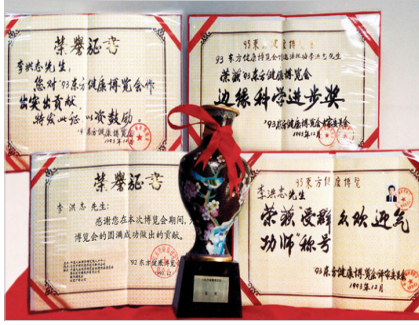 荣誉证书
李洪志先生:
您对'93东方健康博览会作
出突出贡献,
特发此证 以资鼓励。
'93东方健康博览会
1993年12月
李洪志先生
荣获'93东方健康博览会
边缘科学进步奖
'93东方健康博览会评审委员会
1993年12月
荣誉证书
李洪志先生:
感谢您在本次博览会期间,
博览会的圆满成功做出的贡献。
'92东方健康博览
'93东方健康博览
李洪志先生
荣获受群众欢迎气
功师"称号
'93东方健康博览会评审委员会
1993年12月